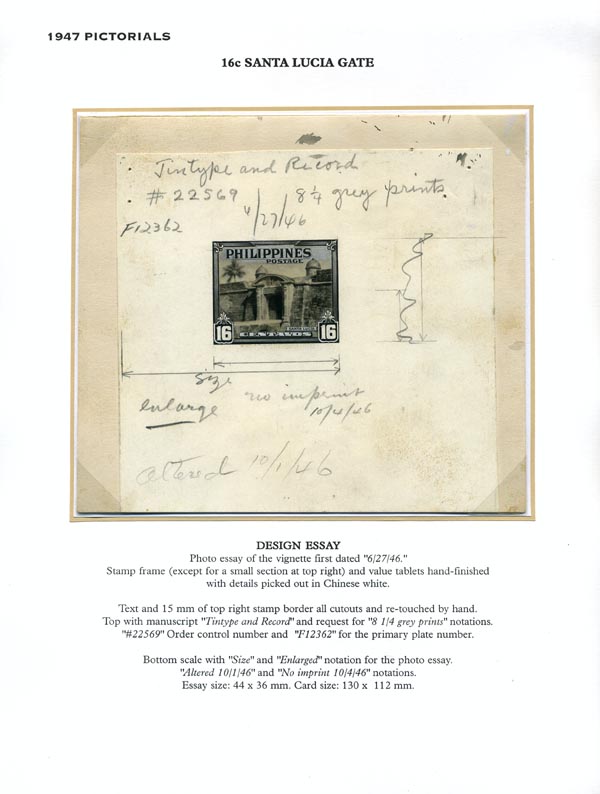 1947 PICTORIALS
16c SANTA LUCIA GATE
Tintype and Record
# 22569 8 1/4 grey prints
F12362 6/27/46
PHILIPPINES
POSTAGE
SANTA LUCIA
16 16
Size
enlarge no imprint
10/4/46
altered 10/1/46
DESIGN ESSAY
Photo essay of the vignette first dated "6/27/46."
Stamp frame (except for a small section at top right) and value tablets hand-finished
with details picked out in Chinese white.
Text and 15 mm of top right stamp border all cutouts and re-touched by hand.
Top with manuscript "Tintype and Record" and request for "8 1/4 grey prints" notations.
"#22569" Order control number and "F12362" for the primary plate number.
Bottom scale with "Size" and "Enlarged" notation for the photo essay.
"Altered 10/1/46" and "No imprint 10/4/46" notations.
Essay size: 44 x 36 mm. Card size: 130 x 112 mm.